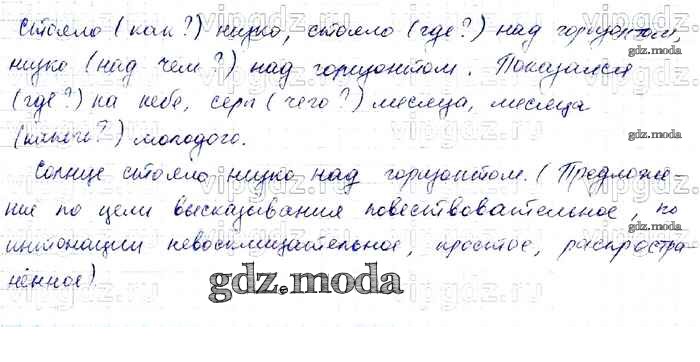 стояло (как?) низко, стояло (где?) над горизонтом,
низко (над чем?) над горизонтом. Показался
(где?) на небе, серп (чего?) месяца, месяца
(какого?) молодого.
Солнце стояло низко над горизонтом. (Предложе-
ние по цели высказывания повествовательное, по
интонации невосклицательное, простое, распростра-
нённое)
gdz.moda
gdz.moda
gdz.moda
gdz.moda